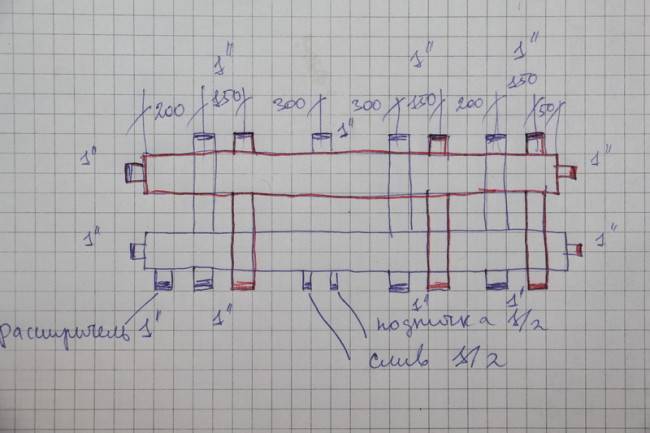 1" 1" 1"
200 150 300 300 150 200 150 50
1" 1" 1"
1" 1"
1" 1" 1"
расширитель 1" подпитка 1/2
слив 1/2